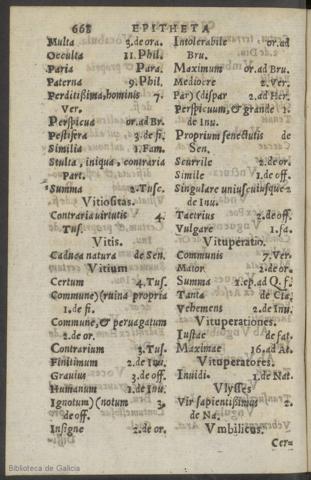 668 EPITHETA
Multa 2.de ora.
Occulta 11.Phil.
Paria Para.
Paterna 9.Phil.
Perditißima, hominis 7.
Ver.
Perspicua or.ad Br.
Pestifera 3.de fi.
Similia 1.Fam.
Stulta, iniqua, contraria
Part.
Summa 2.Tusc.
Vitiositas.
Contraria uirtutis 4.
Tus.
Vitis.
Caduca natura de Sen.
Vitium
Certum 4.Tus.
Commune)(ruina propria
1.de fi.
Commune, & peruagatum
2.de or.
Contrarium 3.Tus.
Finitimum 2.de Inu.
Grauius 3.de off.
Humanum 1.de Inu.
Ignotum)(notum 3.
de off.
Insigne 2.de or.
Intolerabile or.ad
Bru.
Maximum or.ad Bru.
Mediocre 2.Ver.
Par)(dispar 2.ad Her.
Perspicuum, & grande 1.
de Inu.
Proprium senectutis de
Sen.
Scurrile 2.de or.
Simile 1.de off.
Singulare uniuscuiusque 2
de Inu.
Taetrius 2.de off.
Vulgare 1.fa.
Vituperatio.
Communis 7.Ver.
Maior 2.de or.
Summa 1.ep.ad Q.f.
Tanta de Cla.
Vehemens 2.de Inu.
Vituperationes.
Iustae de fat.
Maximae 16.ad At.
Vituperatores.
Inuidi 1.de Nat.
Vlysses
Vir sapientißimus 2.
de Na.
Vmbilicus.
Cer=
Biblioteca de Galicia